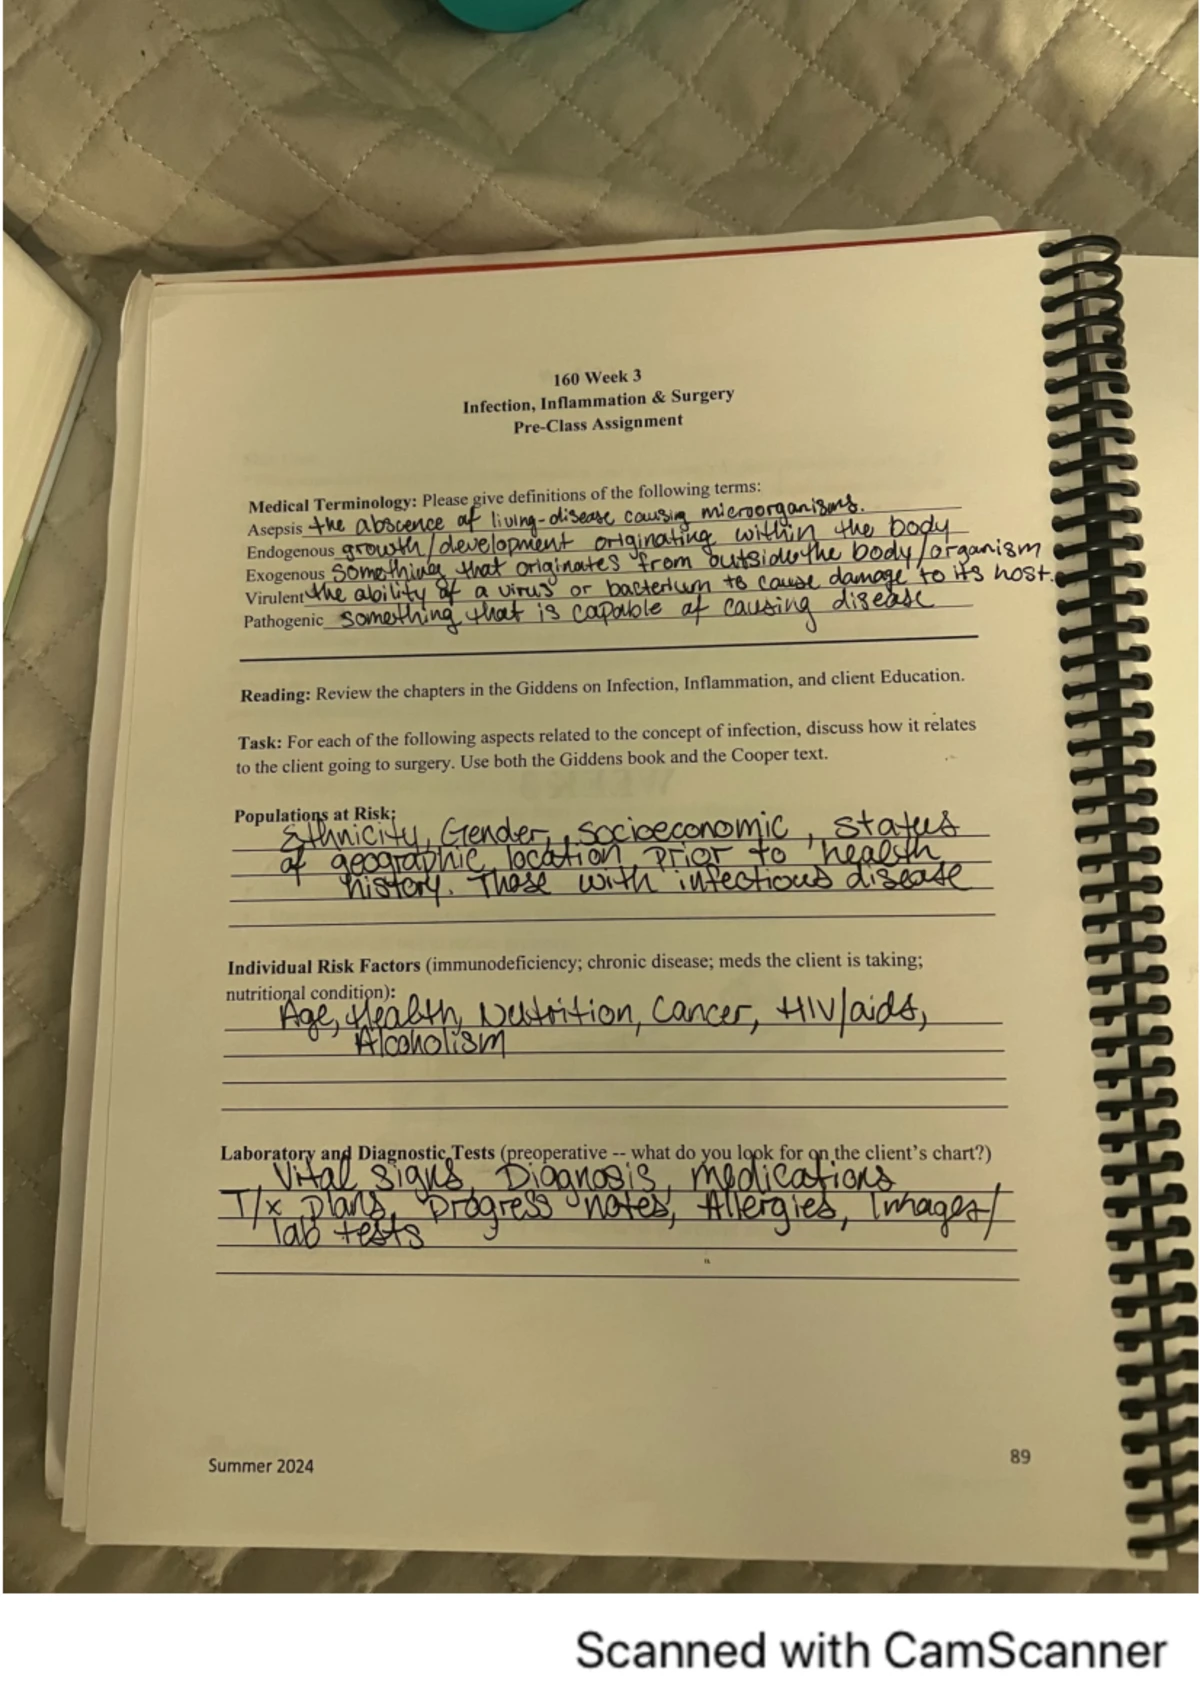 160 Week 3
Infection, Inflammation & Surgery
Pre-Class Assignment
Medical Terminology: Please give definitions of the following terms:
Asepsis the abscence of living-disease causing microorganisms.
Endogenous growth/development originating within the body
Exogenous something that originates from outside the body/organism
Virulent the ability of a virus or bacterium to cause damage to its host.
Pathogenic something that is capable of causing disease
Reading: Review the chapters in the Giddens on Infection, Inflammation, and client Education.
Task: For each of the following aspects related to the concept of infection, discuss how it relates
to the client going to surgery. Use both the Giddens book and the Cooper text.
Populations at Risk:
Ethnicity, Gender, socioeconomic, status
of geographic location, prior to health
history. Those with infectious disease
Individual Risk Factors (immunodeficiency; chronic disease; meds the client is taking;
nutritional condition):
Age, Health, Nutrition, Cancer, HIV/aids,
Alcoholism
Laboratory and Diagnostic Tests (preoperative -- what do you look for on the client's chart?)
Vital signs, Diagnosis, medications
T/x plans, Progress notes, Allergies, Images/
lab tests
Summer 2024
89
Scanned with CamScanner